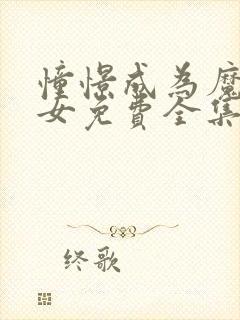 憧憬成为魔
女免費全集
终歌